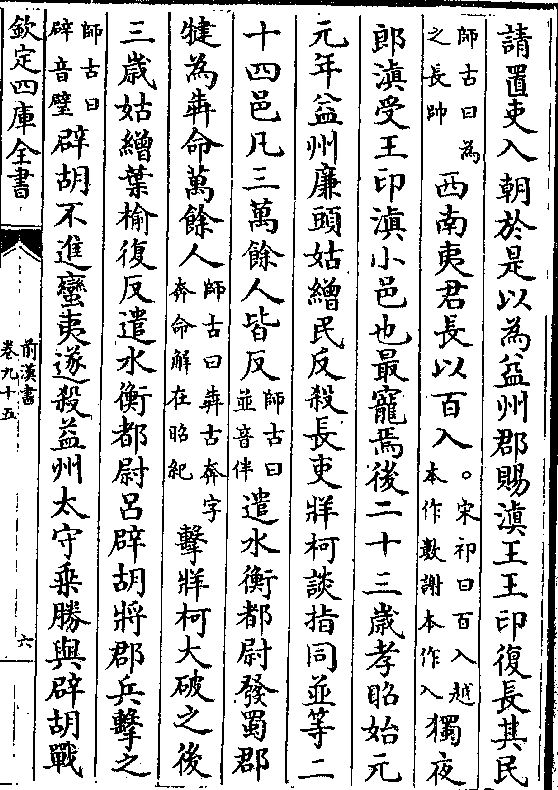 請置吏入朝於是以為益州郡賜滇王王印復長其民
師古曰為
之長帥
西南夷君長以百入
。宋祁曰百入越
本作數謝本作入
獨夜
郎滇受王印滇小邑也最寵焉後二十三歲孝昭始元
元年益州廉頭姑繒民反殺長吏牂柯談指同並等二
十四邑凡三萬餘人皆反
師古曰
並音伴
遣水衡都尉發蜀郡
犍為犇命萬餘人
師古曰犇古奔字
奔命解在昭紀
擊牂柯大破之後
三歲姑繒葉榆復反遣水衡都尉呂辟胡將郡兵擊之
師古曰
辟音璧
辟胡不進蠻夷遂殺益州太守乘勝與辟胡戰
欽定四庫全書
前漢書
卷九十五
六